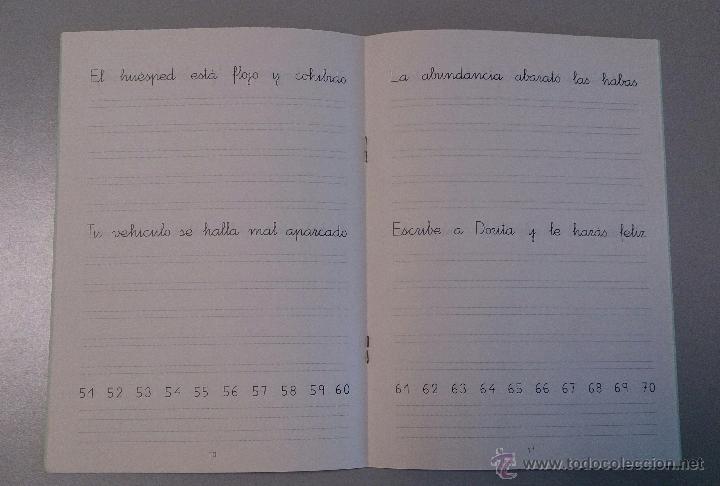 El huésped está flojo y cohibido
Tu vehículo se halla mal aparcado
51 52 53 54 55 56 57 58 59 60
10
La abundancia abarató las habas
Escribe a Dorita y le harás feliz
61 62 63 64 65 66 67 68 69 70
11
© www.todocoleccion.net